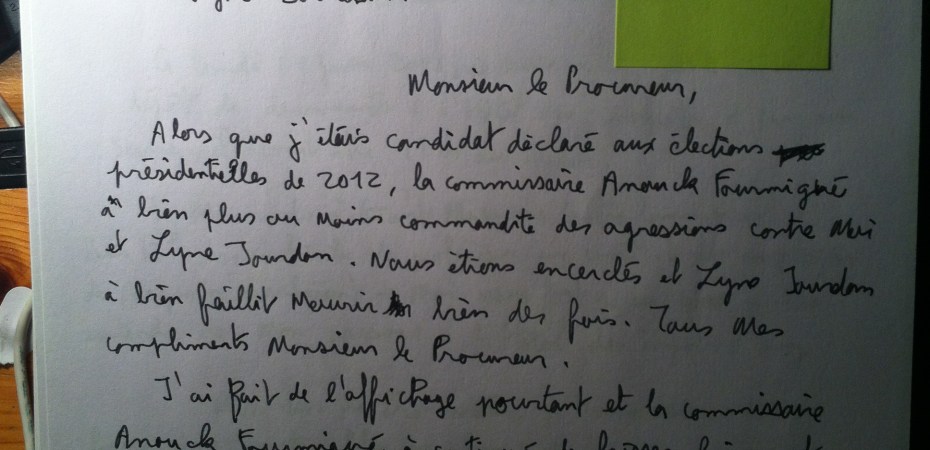 Monsieur le Procureur,
Alors que j'étais candidat déclaré aux élections
présidentielles de 2012, la commissaire Anouck Fourmigué
à bien plus ou moins commandité des agressions contre Moi
et Lyne Jourdan. Nous étions encerclés et Lyne Jourdan
à bien faillit Mourir bien des fois. Tous Mes
compliments Monsieur le Procureur.
J'ai fait de l'affichage pourtant et la commissaire
Anouck Fourmigué à